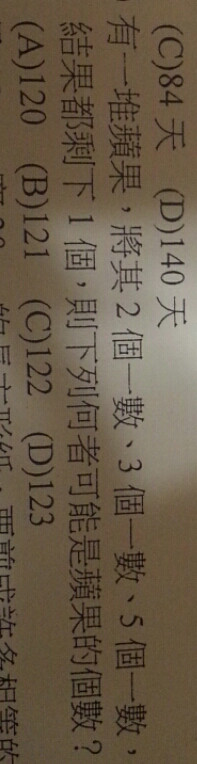 (C)84 天 (D)140 天
有一堆蘋果，將其 2 個一數、3 個一數、5 個一數，
結果都剩下 1 個，則下列何者可能是蘋果的個數？
(A)120 (B)121 (C)122 (D)123
的長方形紙，要剪成許多相等的